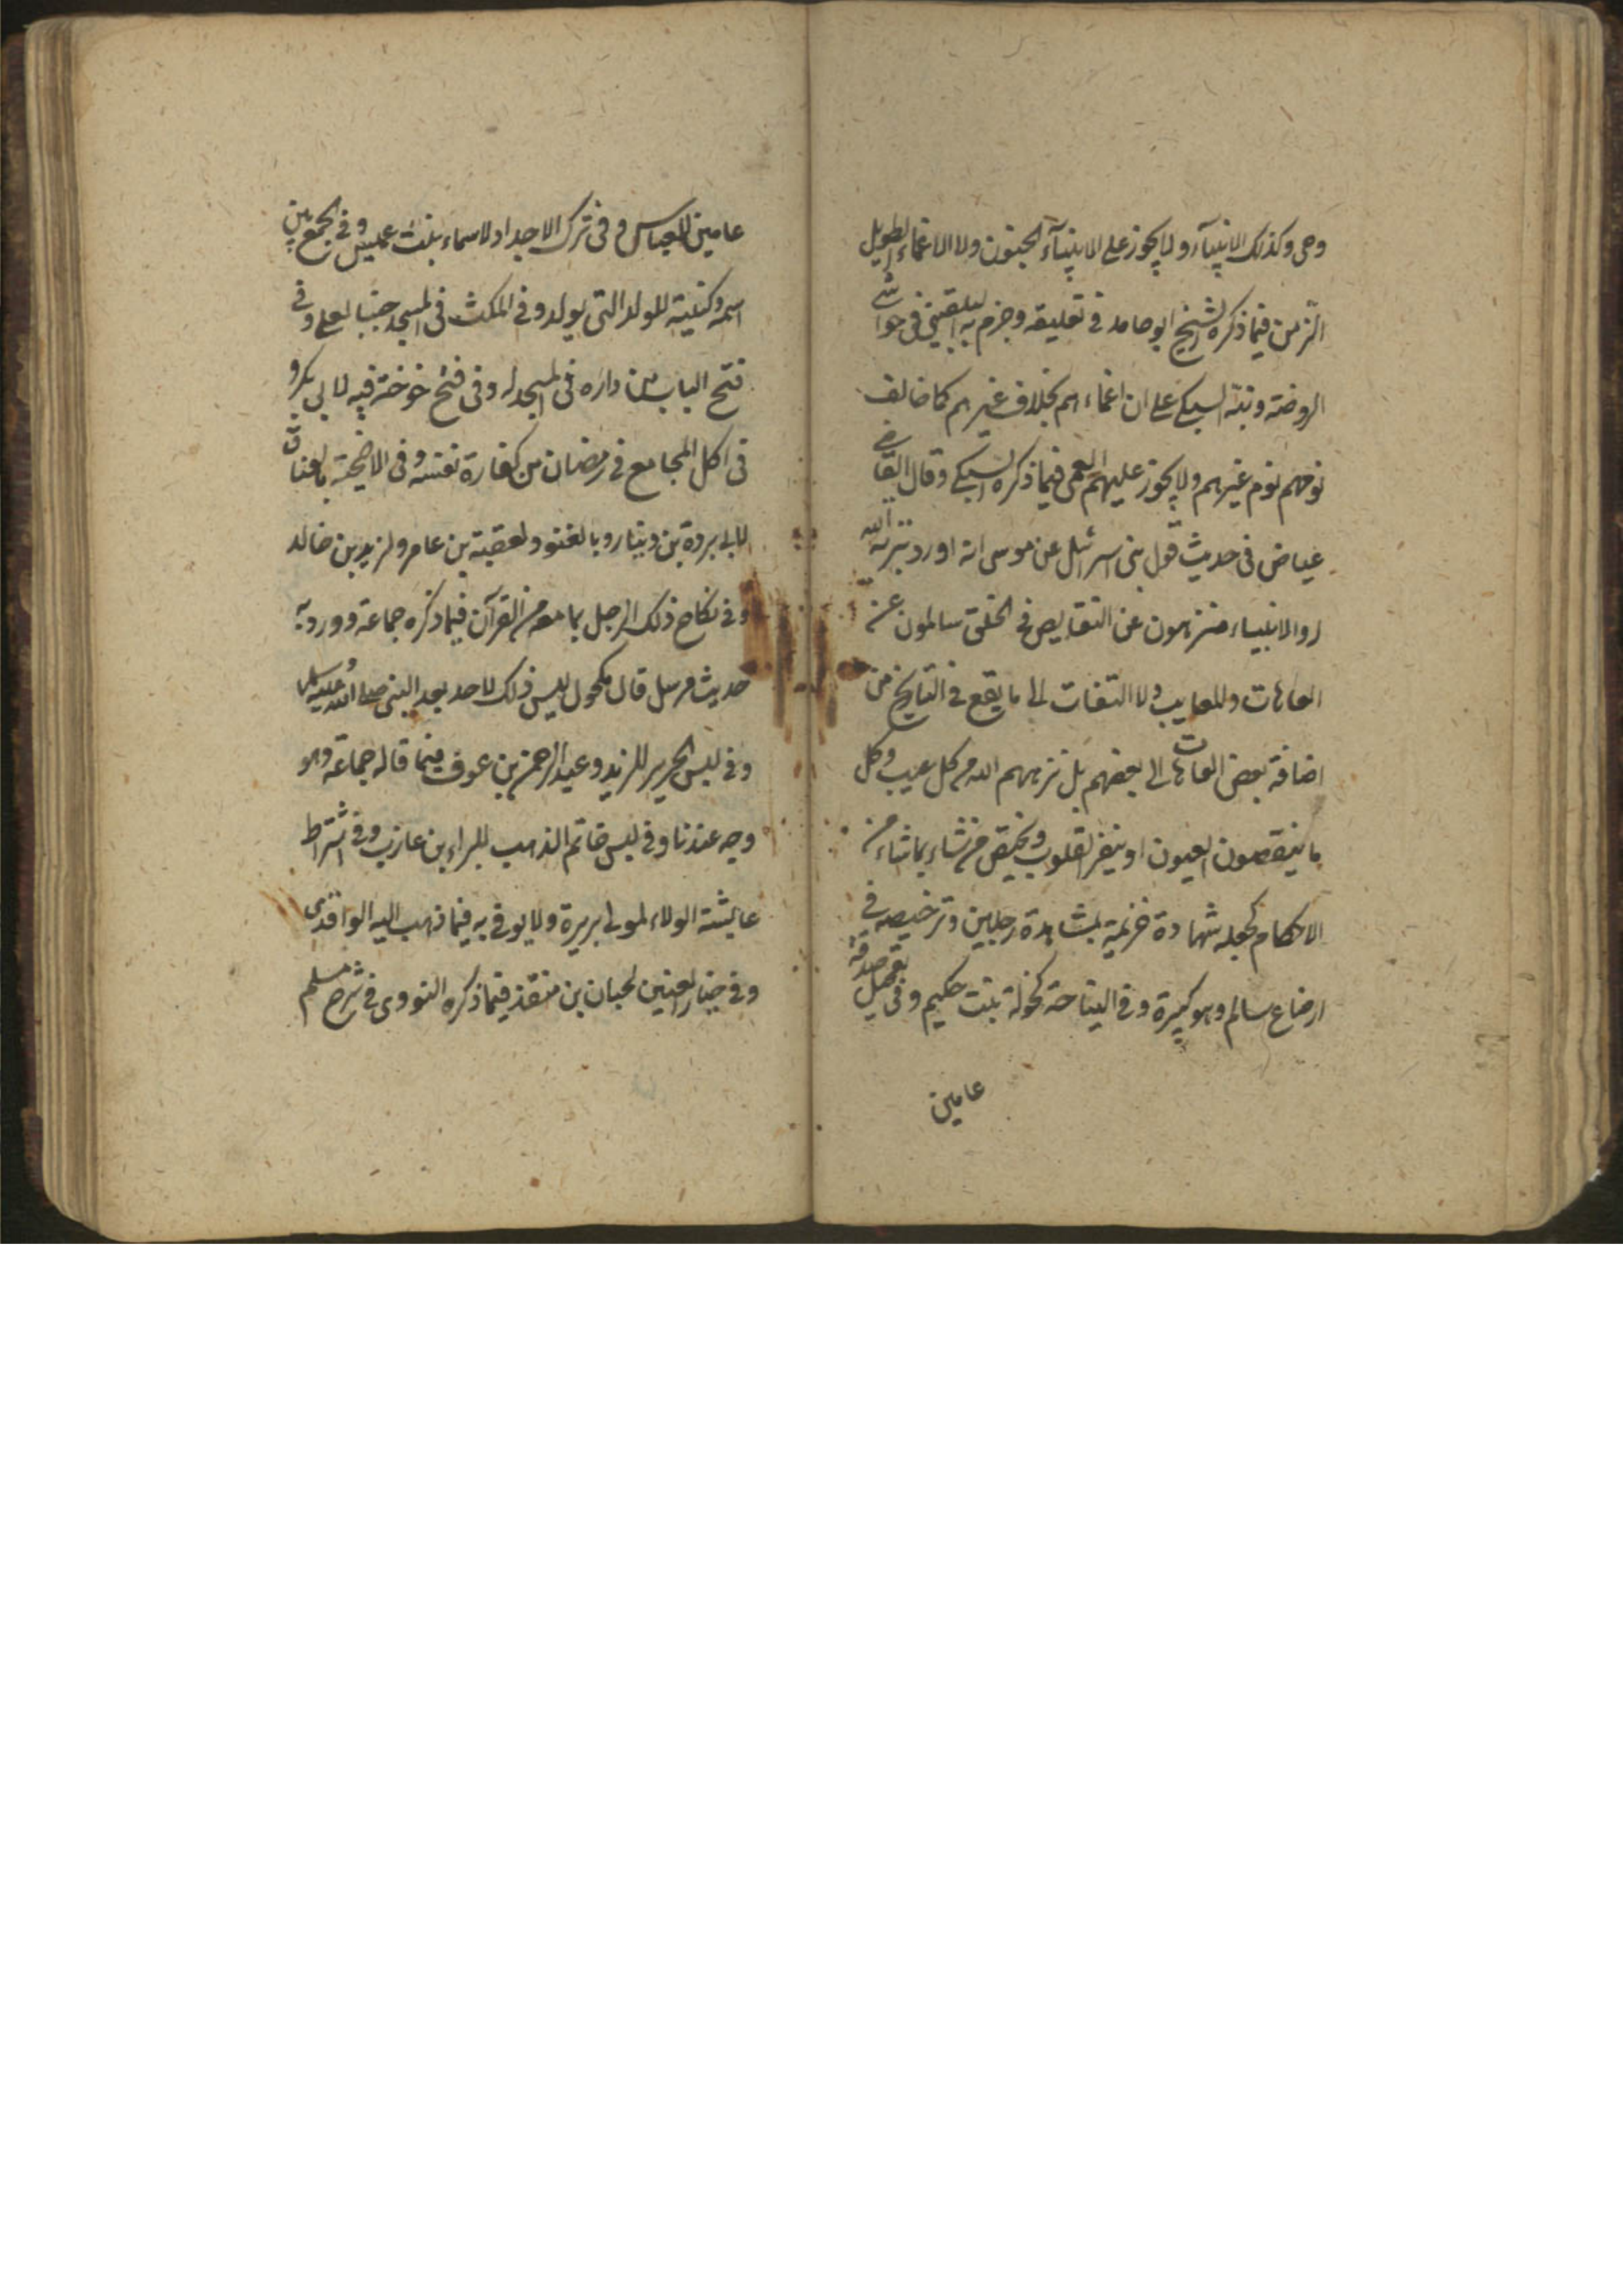 وحى وكذلك الانبيآء ولا يجوز على الانبيآء الجنون ولا الاغماء الطويل
الزمن فيما ذكره الشيخ ابو حامد فى تعليقه وجزم به البلقينى فى حواشى
الروضة ونبّه السبكى على ان اغماءهم بخلاف غيرهم كما خالف
نومهم نوم غيرهم ولا يجوز عليهم العمى فيما ذكره السبكى وقال القاضى
عياض فى حديث قول بنى اسرائيل عن موسى انه ادر وتبرئة الله
له والانبياء منزهون عن النقايص فى الخلق سالمون عن
العاهات والمعايب ولا التفات الى ما يقع فى التاريخ من
اضافة بعض العاهات الى بعضهم بل نزههم الله من كل عيب وكل
ما ينقصون العيون او ينفر القلوب ويختص من شاء بما شاء من
الاحكام كجعله شهادة خزيمة بشهادة رجلين وترخيصه فى
ارضاع سالم وهو كبيرة وفى النياحة لخولة بنت حكيم وفى تعجيل صدقة
عامين
عامين للعباس وفى ترك الاحداد لاسماء بنت عميس وفى الجمع بين
اسمه وكنيته للولد التى يولد وفى المكث فى المسجد جنبا لعلى وفى
فتح الباب من داره فى المسجد له وفى فتح خوخة فيه لابى بكر و
فى اكل المجامع فى رمضان من كفارة نفسه وفى الاضحية بالعناق
لابى بردة بن دينار وبالعتود لعقبة بن عامر ولزيد بن خالد
وفى نكاح ذلك الرجل بما معه من القرآن فيما ذكره جماعة وورد به
حديث مرسل قال مكحول ليس ذلك لاحد بعد النبى صلى الله عليه وسلم
وفى لبس الحرير للزبير وعبد الرحمن بن عوف فيما قاله جماعة وهو
وجه عندنا وفى لبس خاتم الذهب للبراء بن عازب وفى اشتراط
عايشة الولاء لموالى بريرة ولا يوفى به فيما ذهب اليه الواقدى
وفى خيار الغبن لحبان بن منقذ فيما ذكره النووى فى شرح مسلم